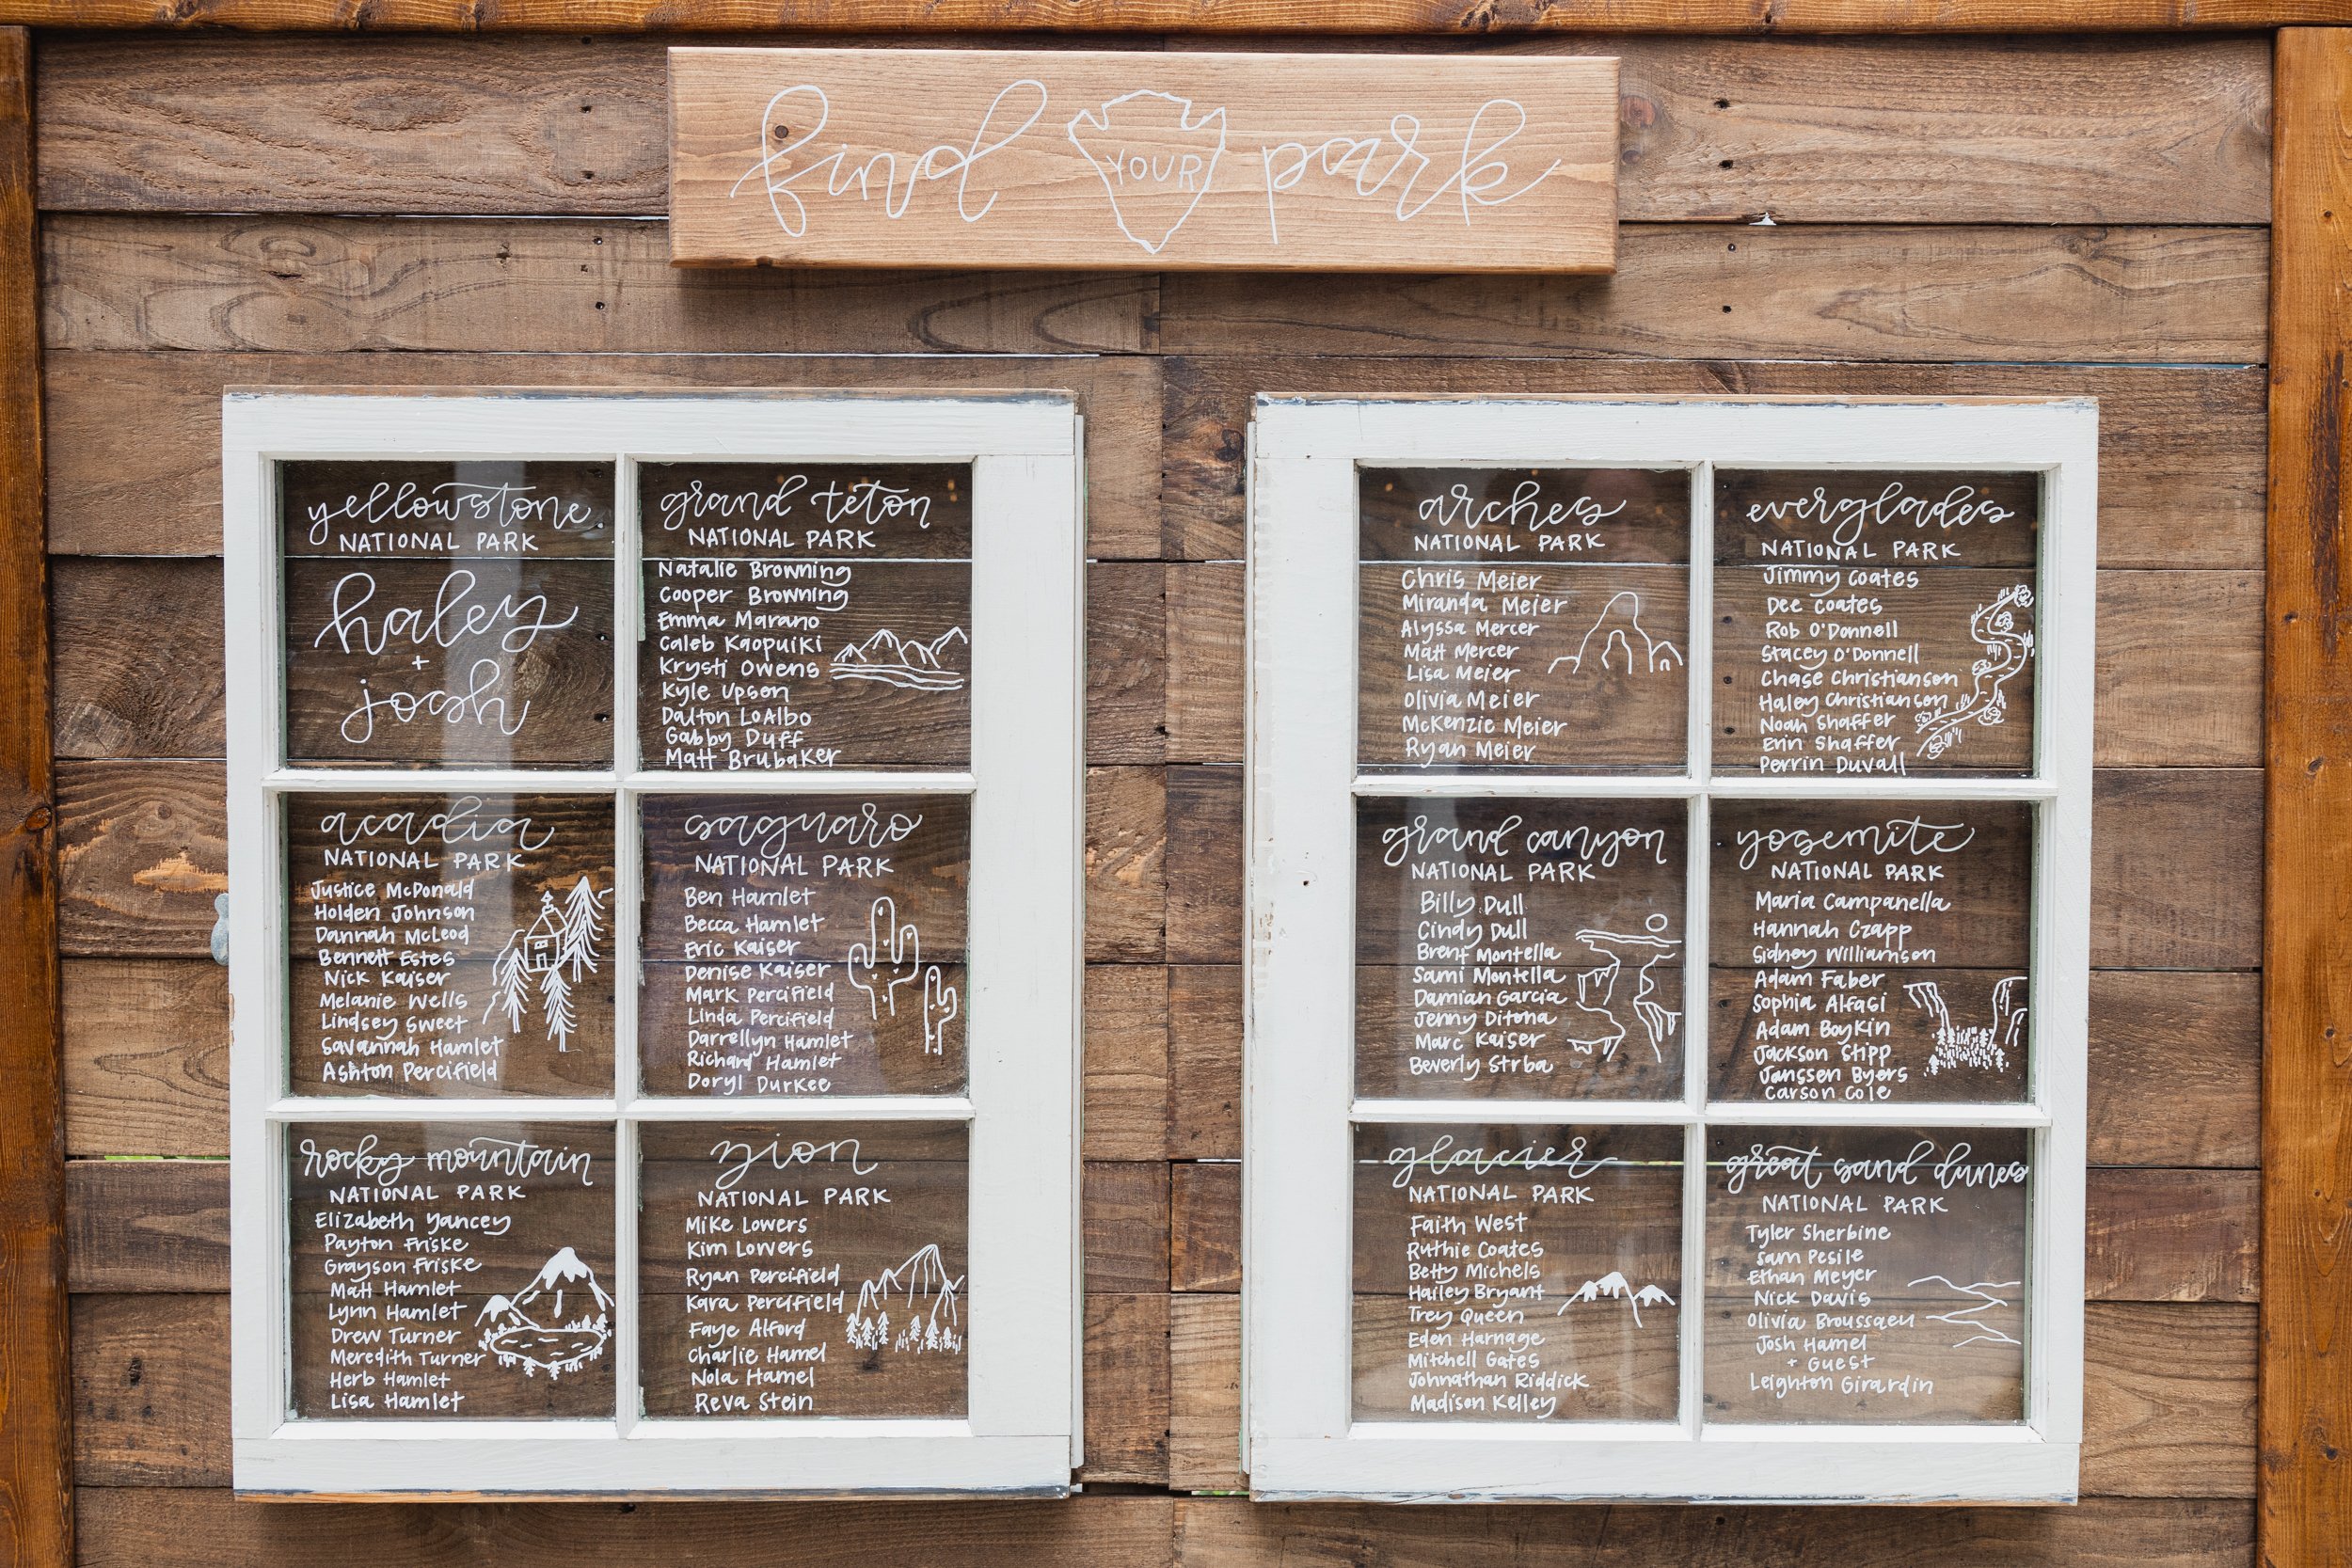 find YOUR park
yellowstone
NATIONAL PARK
haley
+
josh
grand teton
NATIONAL PARK
Natalie Browning
Cooper Browning
Emma Marano
Caleb Kaopuiki
Krysti Owens
Kyle Upson
Dalton LoAlbo
Gabby Duff
Matt Brubaker
acadia
NATIONAL PARK
Justice McDonald
Holden Johnson
Dannah McLeod
Bennett Estes
Nick Kaiser
Melanie Wells
Lindsey Sweet
Savannah Hamlet
Ashton Percifield
saguaro
NATIONAL PARK
Ben Hamlet
Becca Hamlet
Eric Kaiser
Denise Kaiser
Mark Percifield
Linda Percifield
Darrellyn Hamlet
Richard Hamlet
Doryl Durkee
rocky mountain
NATIONAL PARK
Elizabeth Yancey
Payton Friske
Grayson Friske
Matt Hamlet
Lynn Hamlet
Drew Turner
Meredith Turner
Herb Hamlet
Lisa Hamlet
zion
NATIONAL PARK
Mike Lowers
Kim Lowers
Ryan Percifield
Kara Percifield
Faye Alford
Charlie Hamel
Nola Hamel
Reva Stein
arches
NATIONAL PARK
Chris Meier
Miranda Meier
Alyssa Mercer
Matt Mercer
Lisa Meier
Olivia Meier
McKenzie Meier
Ryan Meier
everglades
NATIONAL PARK
Jimmy Coates
Dee Coates
Rob O'Donnell
Stacey O'Donnell
Chase Christianson
Haley Christianson
Noah Shaffer
Erin Shaffer
Perrin Duvall
grand canyon
NATIONAL PARK
Billy Dull
Cindy Dull
Brent Montella
Sami Montella
Damian Garcia
Jenny Ditona
Marc Kaiser
Beverly Strba
yosemite
NATIONAL PARK
Maria Campanella
Hannah Czapp
Sidney Williamson
Adam Faber
Sophia Alfasi
Adam Boykin
Jackson Stipp
Janssen Byers
Carson Cole
glacier
NATIONAL PARK
Faith West
Ruthie Coates
Betty Michels
Hailey Bryant
Trey Queen
Eden Harnage
Mitchell Gates
Johnathan Riddick
Madison Kelley
great sand dunes
NATIONAL PARK
Tyler Sherbine
Sam Pesile
Ethan Meyer
Nick Davis
Olivia Broussaeu
Josh Hamel
+ Guest
Leighton Girardin